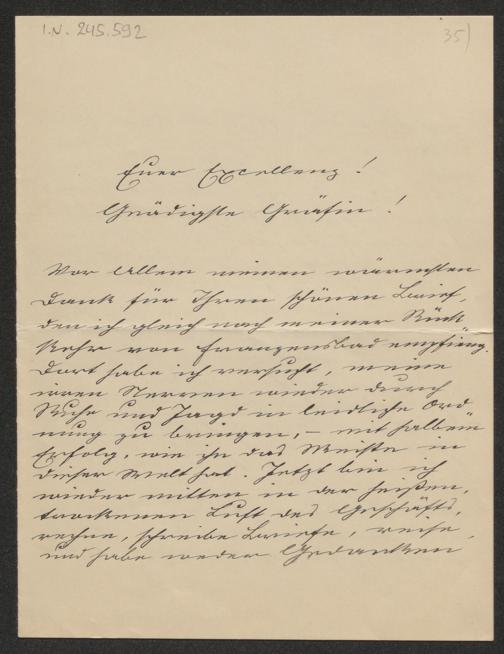 I.N. 245.592
35)
Euer Excellenz!
Gnädigste Gräfin!
Vor Allem meinen wärmsten
Dank für Ihren schönen Brief,
den ich gleich nach meiner Rück-
kehr von Franzensbad empfieng.
Dort habe ich versucht, meine
irren Nerven wieder durch
Ruhe und Jagd in leidliche Ord-
nung zu bringen, – mit halbem
Erfolg, wie ihn das Meiste in
dieser Welt hat. Jetzt bin ich
wieder mitten in der heißen,
trockenen Luft des Geschäfts,
rechne, schreibe Briefe, reise,
und habe weder Gedanken